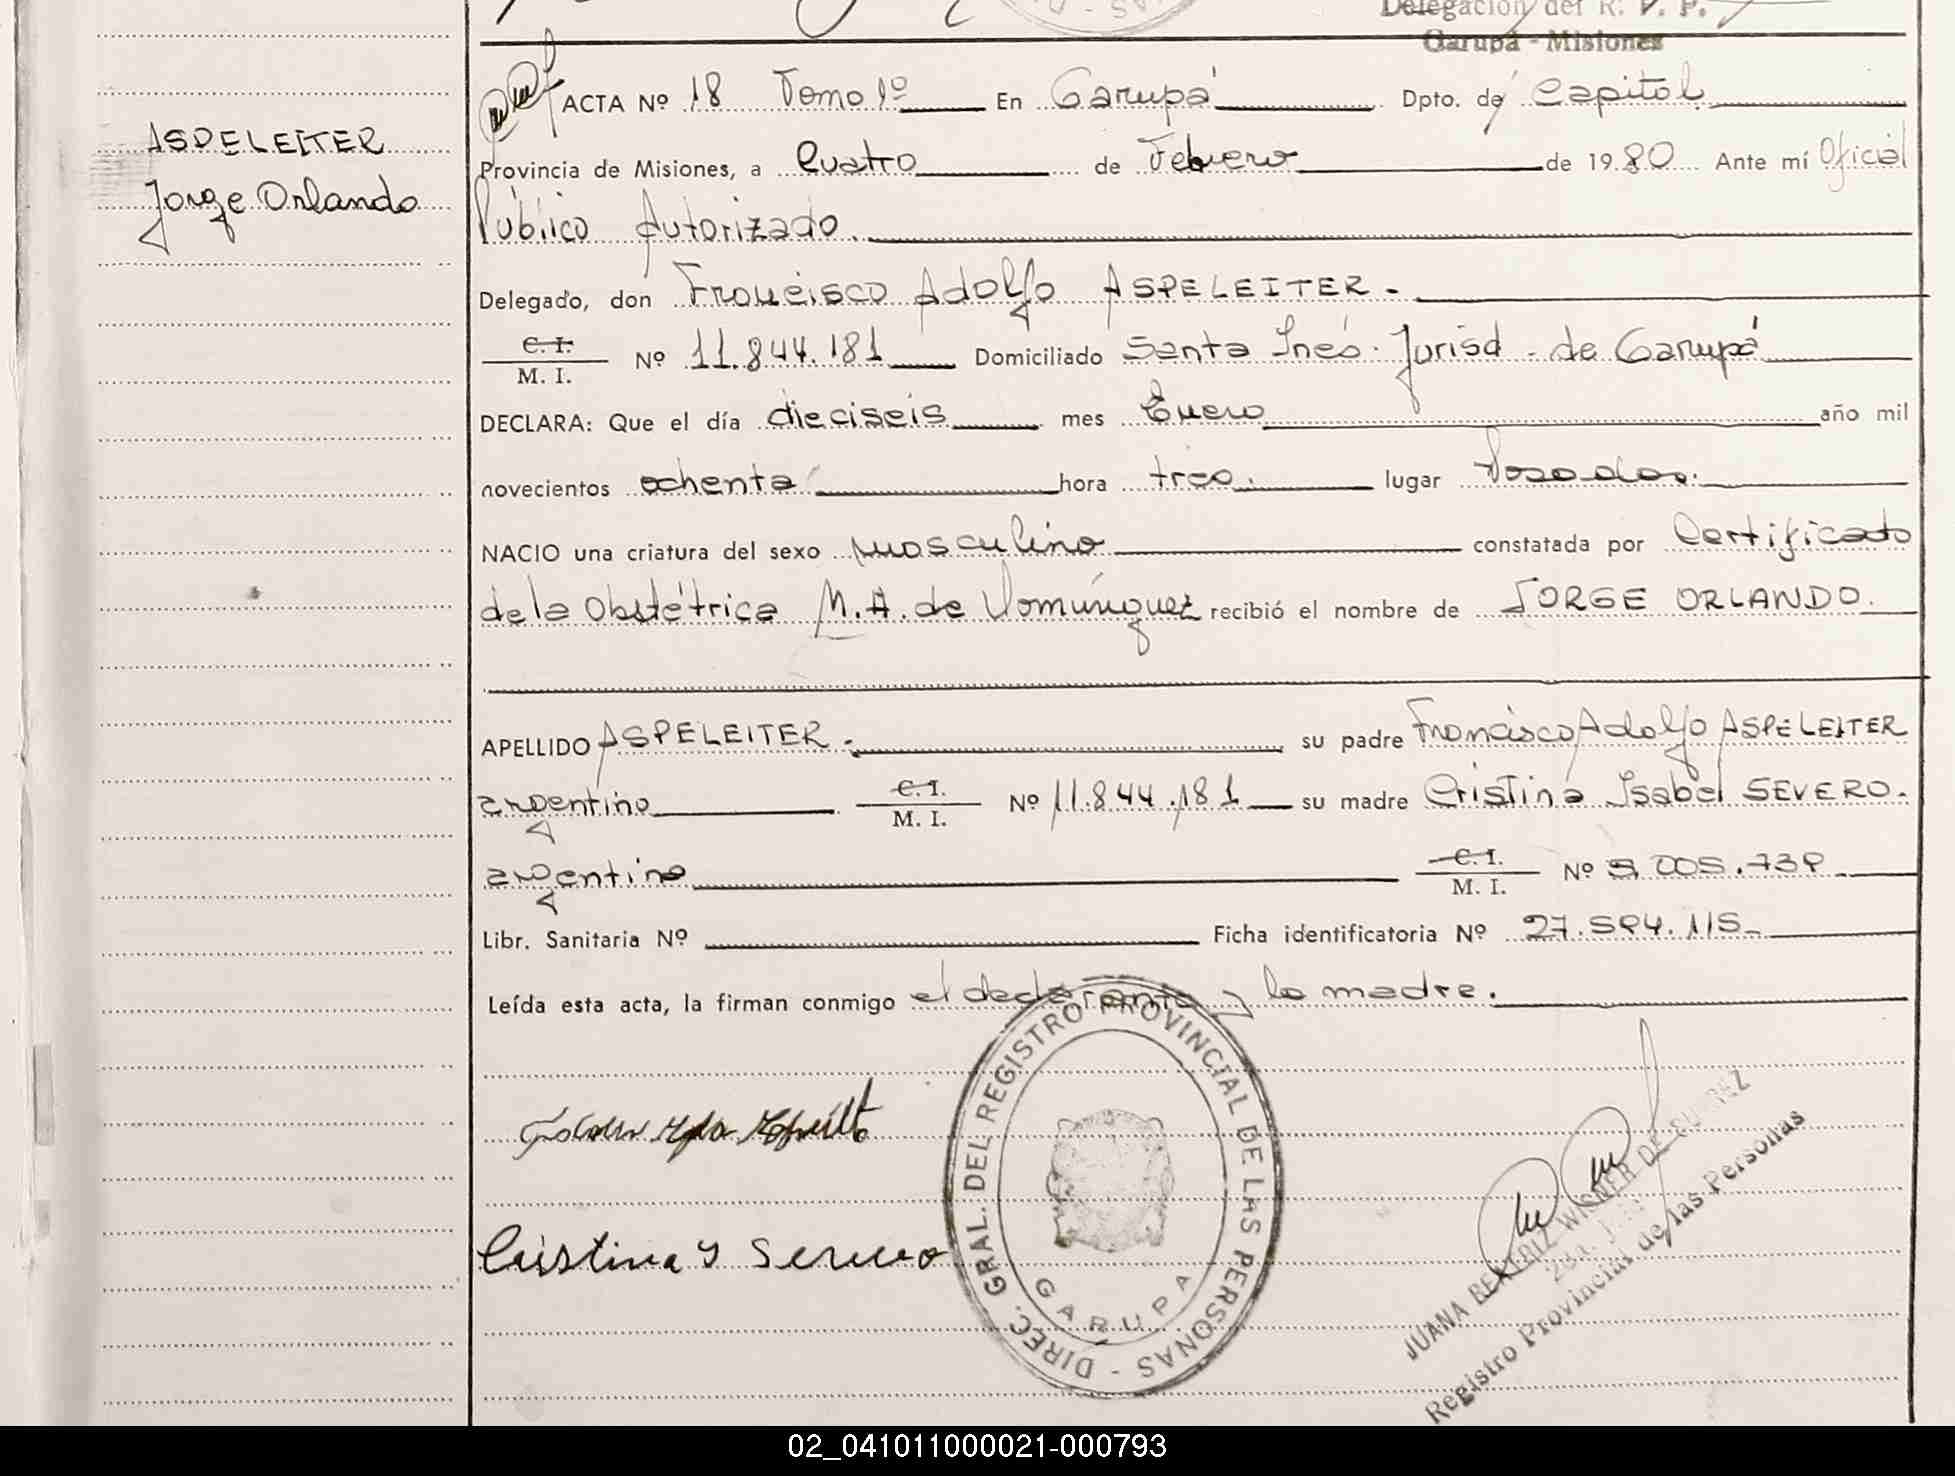 Delegación del R. P. P.
Garupá - Misiones
ACTA Nº 18 Tomo 1º En Garupá Dpto. de Capital
ASPELEITER
Jorge Orlando
Provincia de Misiones, a Cuatro de Febrero de 1980 Ante mí Oficial
Público Autorizado.
Delegado, don Francisco Adolfo ASPELEITER.-
C. I.
M. I. Nº 11.844.181 Domiciliado Santa Inés. Jurisd. de Garupá
DECLARA: Que el día dieciseis mes Enero año mil
novecientos ochenta hora tres. lugar Posadas.
NACIO una criatura del sexo masculino constatada por Certificado
de la Obstétrica M. A. de Domínguez recibió el nombre de JORGE ORLANDO.
APELLIDO ASPELEITER.- su padre Francisco Adolfo ASPELEITER
argentino C. I.
M. I. Nº 11.844.181 su madre Cristina Isabel SEVERO.
argentina C. I.
M. I. Nº
Libr. Sanitaria Nº Ficha identificatoria Nº 27.594.115.-
Leída esta acta, la firman conmigo el declarante y la madre.
Cristina Y Severo
DIREC. GRAL. DEL REGISTRO PROVINCIAL DE LAS PERSONAS -
GARUPA
JUANA BEATRIZ WISNER DE
Registro Provincial de las Personas
02_041011000021-000793